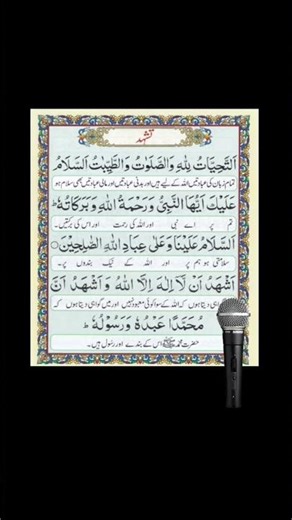 تشہد
اَلتَّحِيَّاتُ لِلّٰهِ وَالصَّلَوٰتُ وَالطَّيِّبٰتُ اَلسَّلَامُ
تمام زبان کی عبادتیں اللہ کے لیے ہیں اور بدنی عبادتیں اور مالی عبادتیں بھی سلام ہو
عَلَيْكَ اَيُّهَا النَّبِيُّ وَرَحْمَةُ اللهِ وَبَرَكَاتُهٗ ط
تم پر اے نبی اور اللہ کی رحمت اور اس کی برکتیں۔
اَلسَّلَامُ عَلَيْنَا وَعَلٰى عِبَادِ اللهِ الصّٰلِحِيْنَ ○
سلامتی ہو ہم پر اور اللہ کے نیک بندوں پر۔
اَشْهَدُ اَنْ لَّا اِلٰهَ اِلَّا اللهُ وَ اَشْهَدُ اَنَّ
میں گواہی دیتا ہوں کہ اللہ کے سوا کوئی معبود نہیں اور میں گواہی دیتا ہوں کہ
مُحَمَّدًا عَبْدُهٗ وَرَسُوْلُهٗ ط
حضرت محمد ﷺ اس کے بندے اور رسول ہیں۔